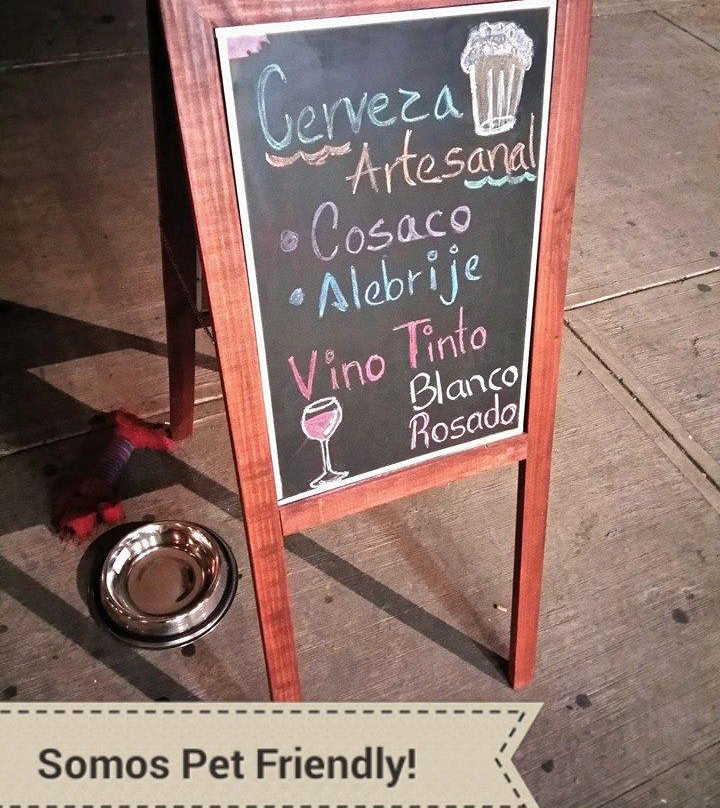 Cerveza
Artesanal
• Cosaco
• Alebrije
Vino Tinto
Blanco
Rosado
Somos Pet Friendly!